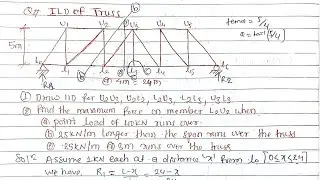 Q.7 ILD of Truss
U1 U2 U3 U4 U5
5m
L0 L1 L2 L3 L4 L5 L6
R1 R2
6 @ 4m = 24m
① Draw ILD for U2U3, U2L3, L2L3, U3L3
② Find the maximum force on member U2U3 when
a point load of 10KN runs over
b 25KN/m longer than the span runs over the truss
25KN/m 3m runs over the truss
Solⁿ: Assume 1KN load at a distance 'x' from L0 [0≤x≤24]
we have, R1 = L-x = 24-x